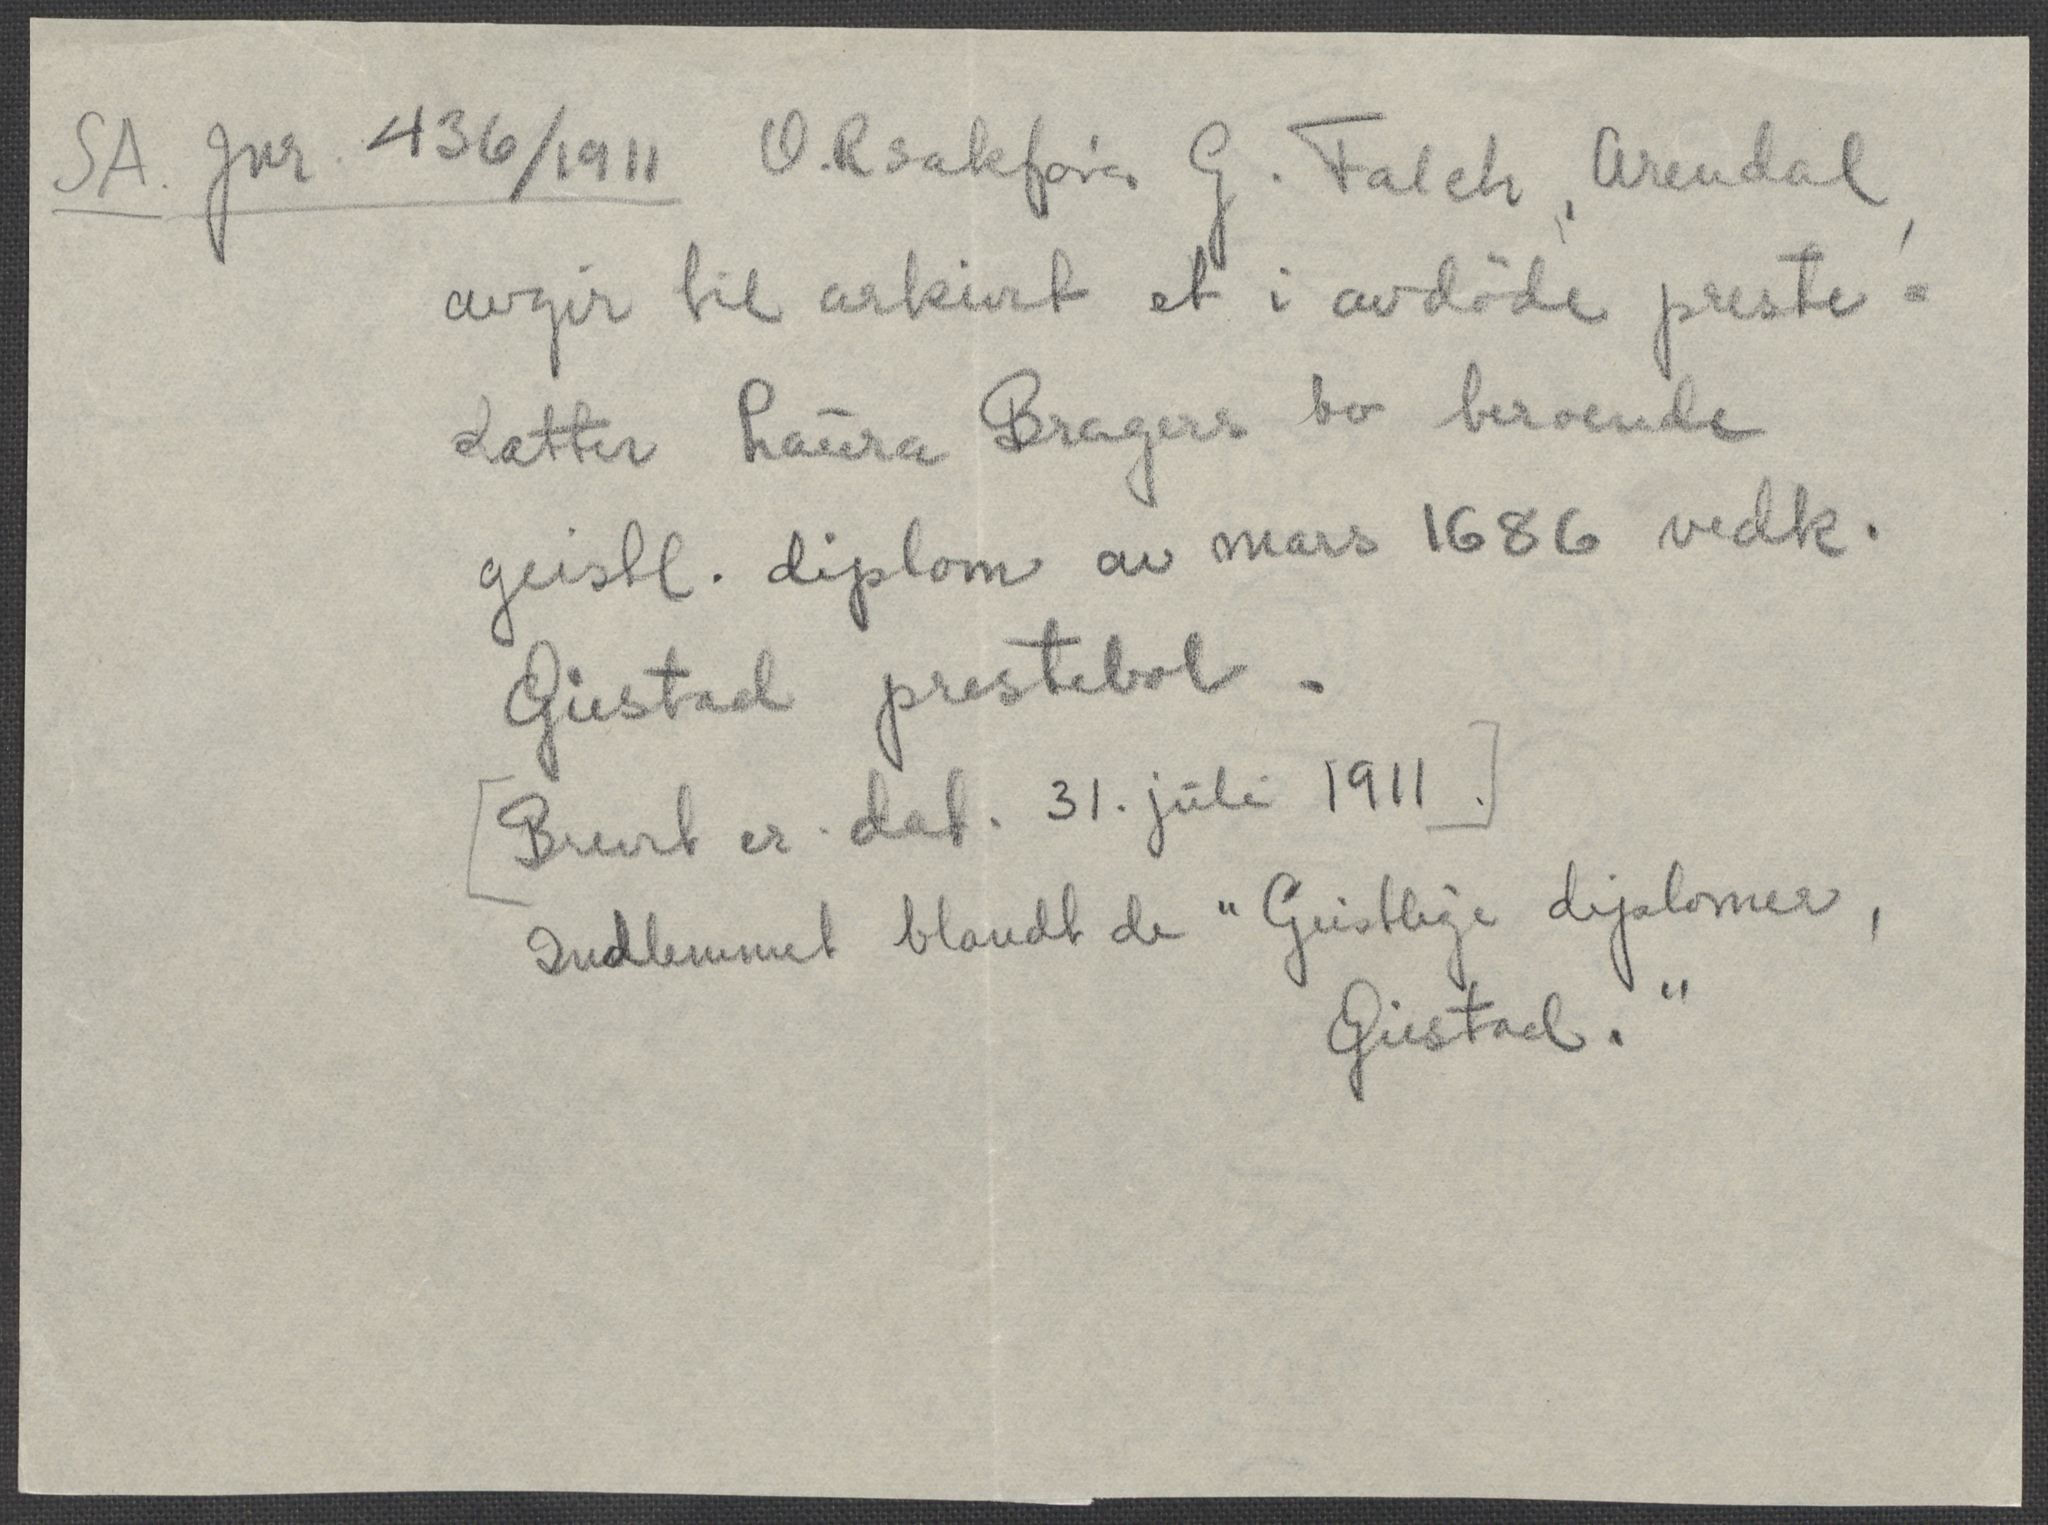 SA. Jnr. 436/1911 O.R sakfører G. Falch, Arendal,
avgir til arkivet et i avdöde preste=
datter Laura Bragers bo beroende
geistl. diplom av mars 1686 vedk.
Giestad prestebol.
[Brevet er dat. 31. juli 1911.]
Indlemmet blandt de "Geistlige diplomer,
Giestad."